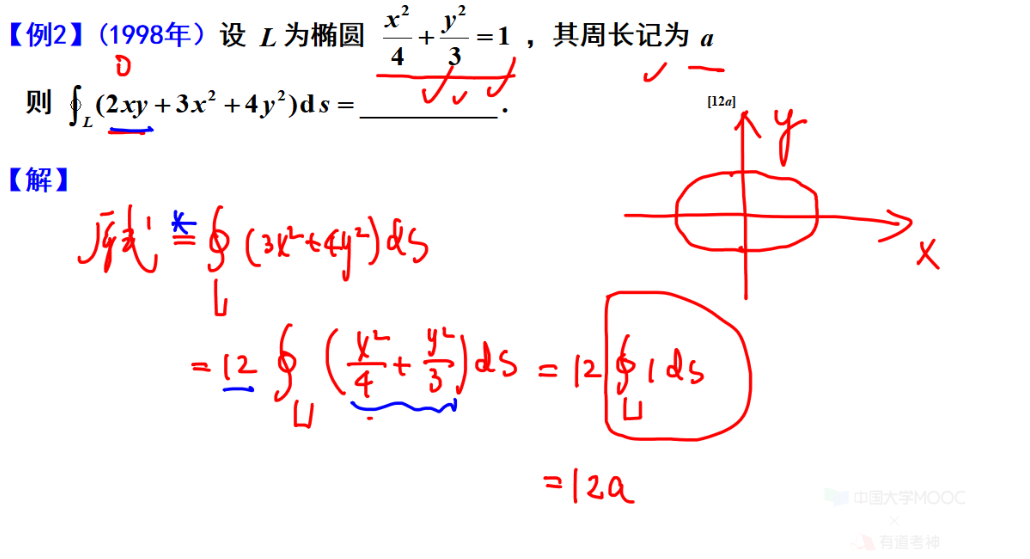 【例2】(1998年) 设 L 为椭圆 x²/4 + y²/3 = 1 ，其周长记为 a
0
则 ∮_L (2xy + 3x² + 4y²)ds = ____________.
[12a]
y
【解】
原式 = ∮_L (3x² + 4y²) ds
x
= 12 ∮_L (x²/4 + y²/3) ds = 12 ∮_L 1 ds
= 12a
中国大学MOOC
×
有道考神